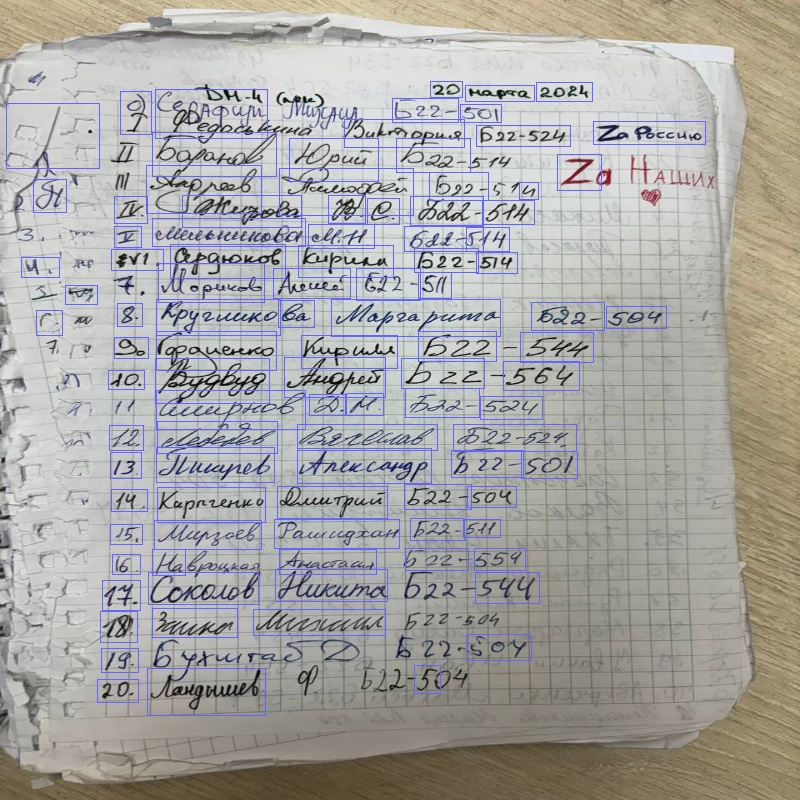 ДМ-4 20 марта 2024
0) Серафим Михаил Б22-501
I Федоськина Виктория Б22-524 Zа Россию
II Баранов Юрий Б22-514 Zа Наших
III Андреев Тимофей Б22-514
IV. Б22-514
V Мельникова М.Н Б22-514
VI. Сердюков Кирилл Б22-514
7. Мориков Алексей Б22-511
8. Кругликова Маргарита Б22-504
9. Гордиенко Кирилл Б22-544
10. Вудвуд Андрей Б22-564
11 Смирнов Д.М. Б22-524
12. Лебедев Вячеслав Б22-524
13 Пишулев Александр Б22-501
14. Карпченко Дмитрий Б22-504
15. Мирзоев Рашидхан Б22-511
16. Навроцкая Анастасия Б22-554
17. Соколов Никита Б22-544
18. Михаил Б22-504
19. Бухштаб Д Б22-504
20. Ландышев Ф Б22-504